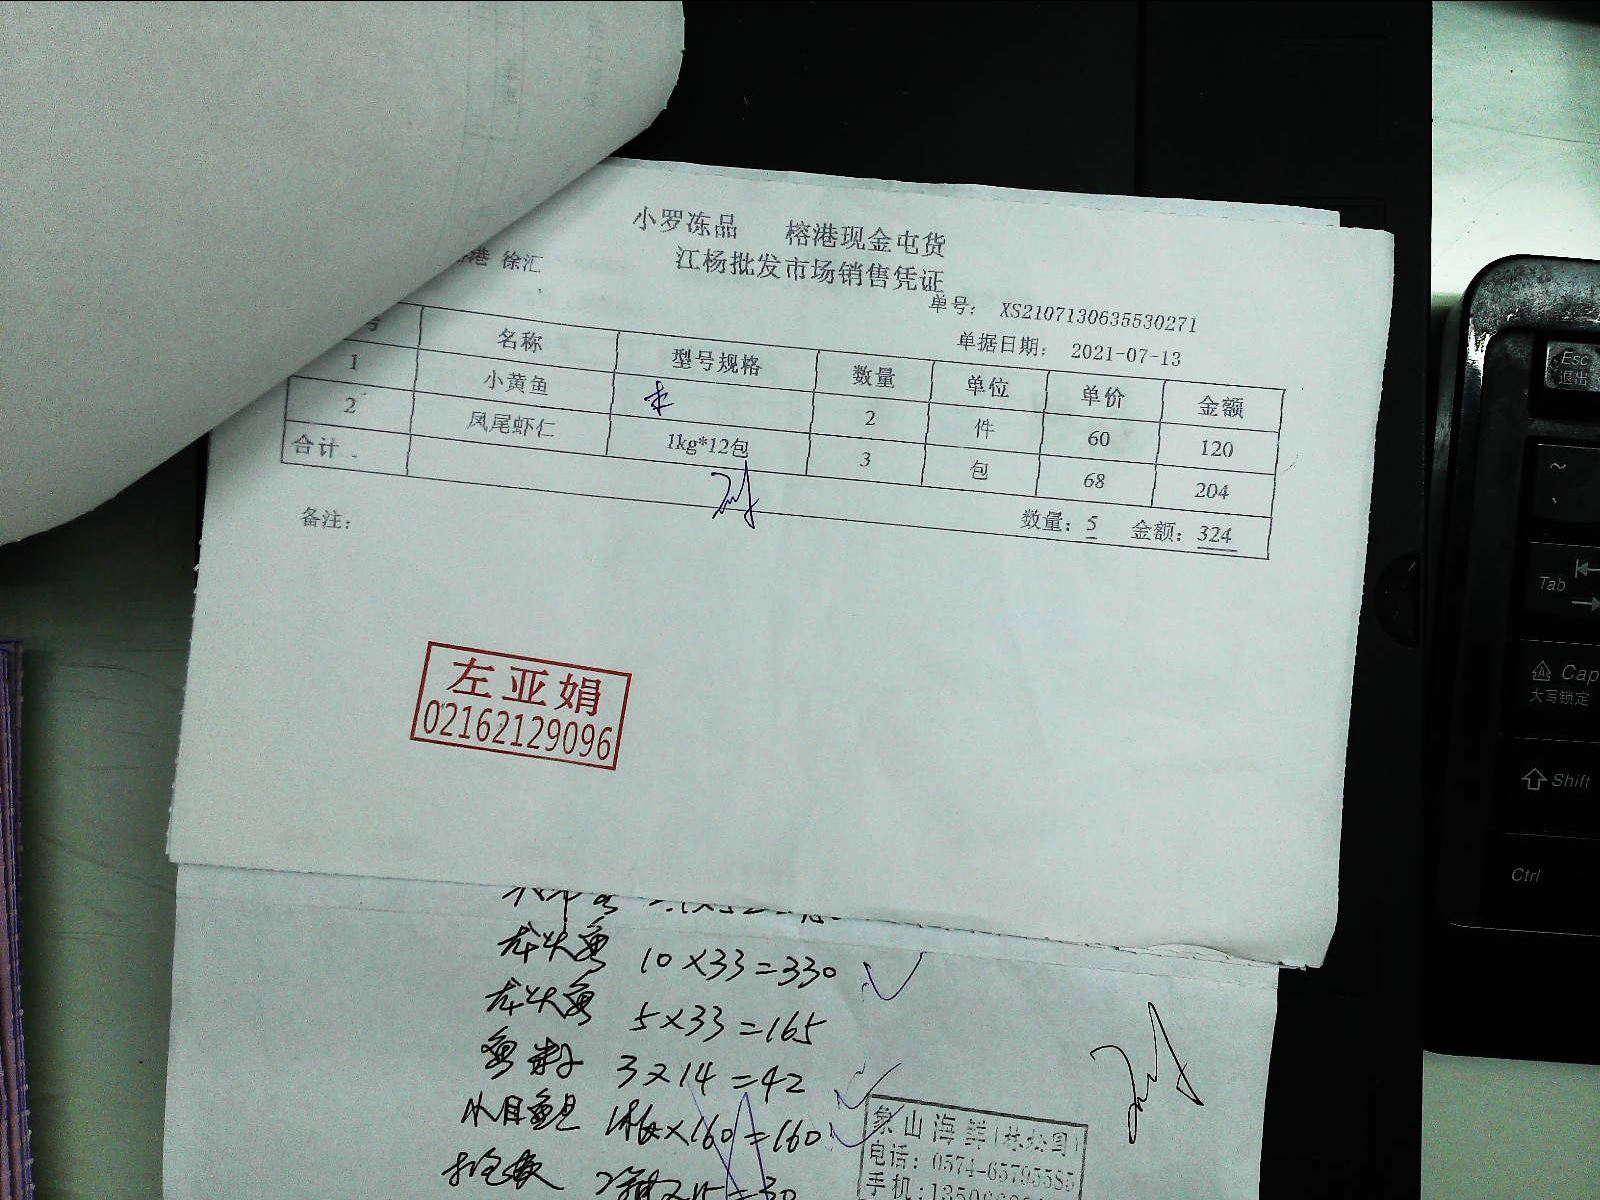 小罗冻品 榕港现金屯货
港 徐汇
江杨批发市场销售凭证
单号： XS2107130635530271
单据日期： 2021-07-13
号 名称 型号规格 数量 单位 单价 金额
1 小黄鱼 2 件 60 120
2 凤尾虾仁 1kg*12包 3 包 68 204
合计 数量：5 金额：324
备注：
左亚娟
02162129096
龙头鱼 10×33=330
龙头鱼 5×33=165
鱼 3×14=42
×160=160
象山海鲜
电话：0574-65795585
手机:
Esc
退出
~
Tab
Cap
大写锁定
Shift
Ctrl